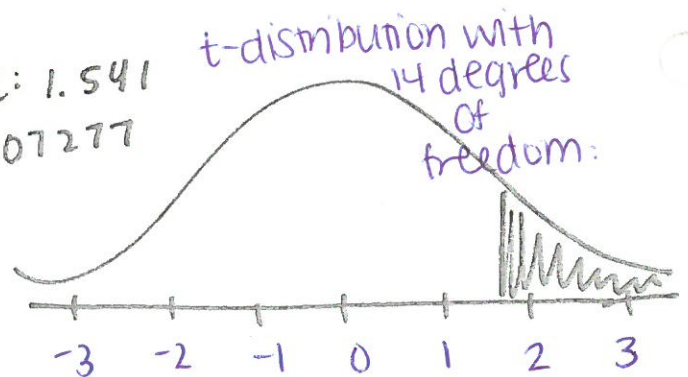 : 1.541
07277
t-distribution with
14 degrees
of
freedom:
-3 -2 -1 0 1 2 3